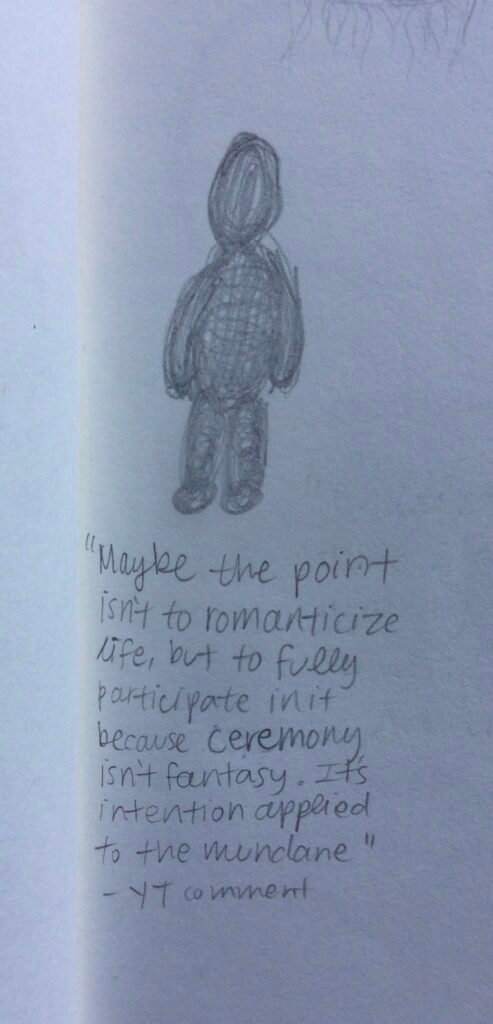 "Maybe the point
isn't to romanticize
life, but to fully
participate in it
because ceremony
isn't fantasy. It's
intention applied
to the mundane"
- YT comment